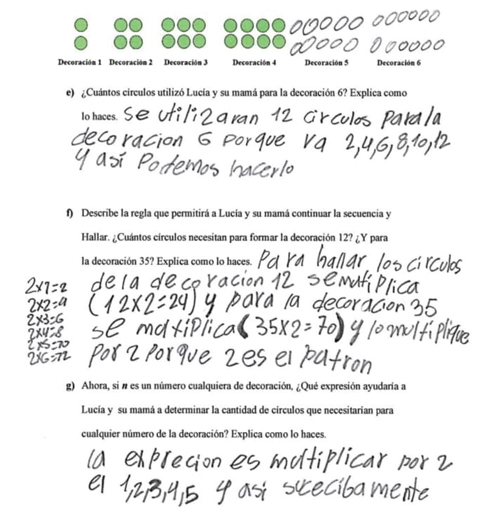 Decoración 1 Decoración 2 Decoración 3 Decoración 4 Decoración 5 Decoración 6
e) ¿Cuántos círculos utilizó Lucía y su mamá para la decoración 6? Explica como
lo haces. Se utilizaran 12 circulos para la
decoracion 6 porque va 2,4,6,8,10,12
y así Podemos hacerlo
f) Describe la regla que permitirá a Lucía y su mamá continuar la secuencia y
Hallar. ¿Cuántos círculos necesitan para formar la decoración 12? ¿Y para
la decoración 35? Explica como lo haces. Para hallar los circulos
de la decoracion 12 se multiplica
(12x2=24) y para la decoracion 35
se multiplica (35x2=70) y lo multiplique
por 2 porque 2 es el patron
2x1=2
2x2=4
2x3=6
2x4=8
2x5=10
2x6=12
g) Ahora, si n es un número cualquiera de decoración, ¿Qué expresión ayudaría a
Lucía y su mamá a determinar la cantidad de círculos que necesitarían para
cualquier número de la decoración? Explica como lo haces.
la exprecion es multiplicar por 2
el 1,2,3,4,5 y asi sucecibamente